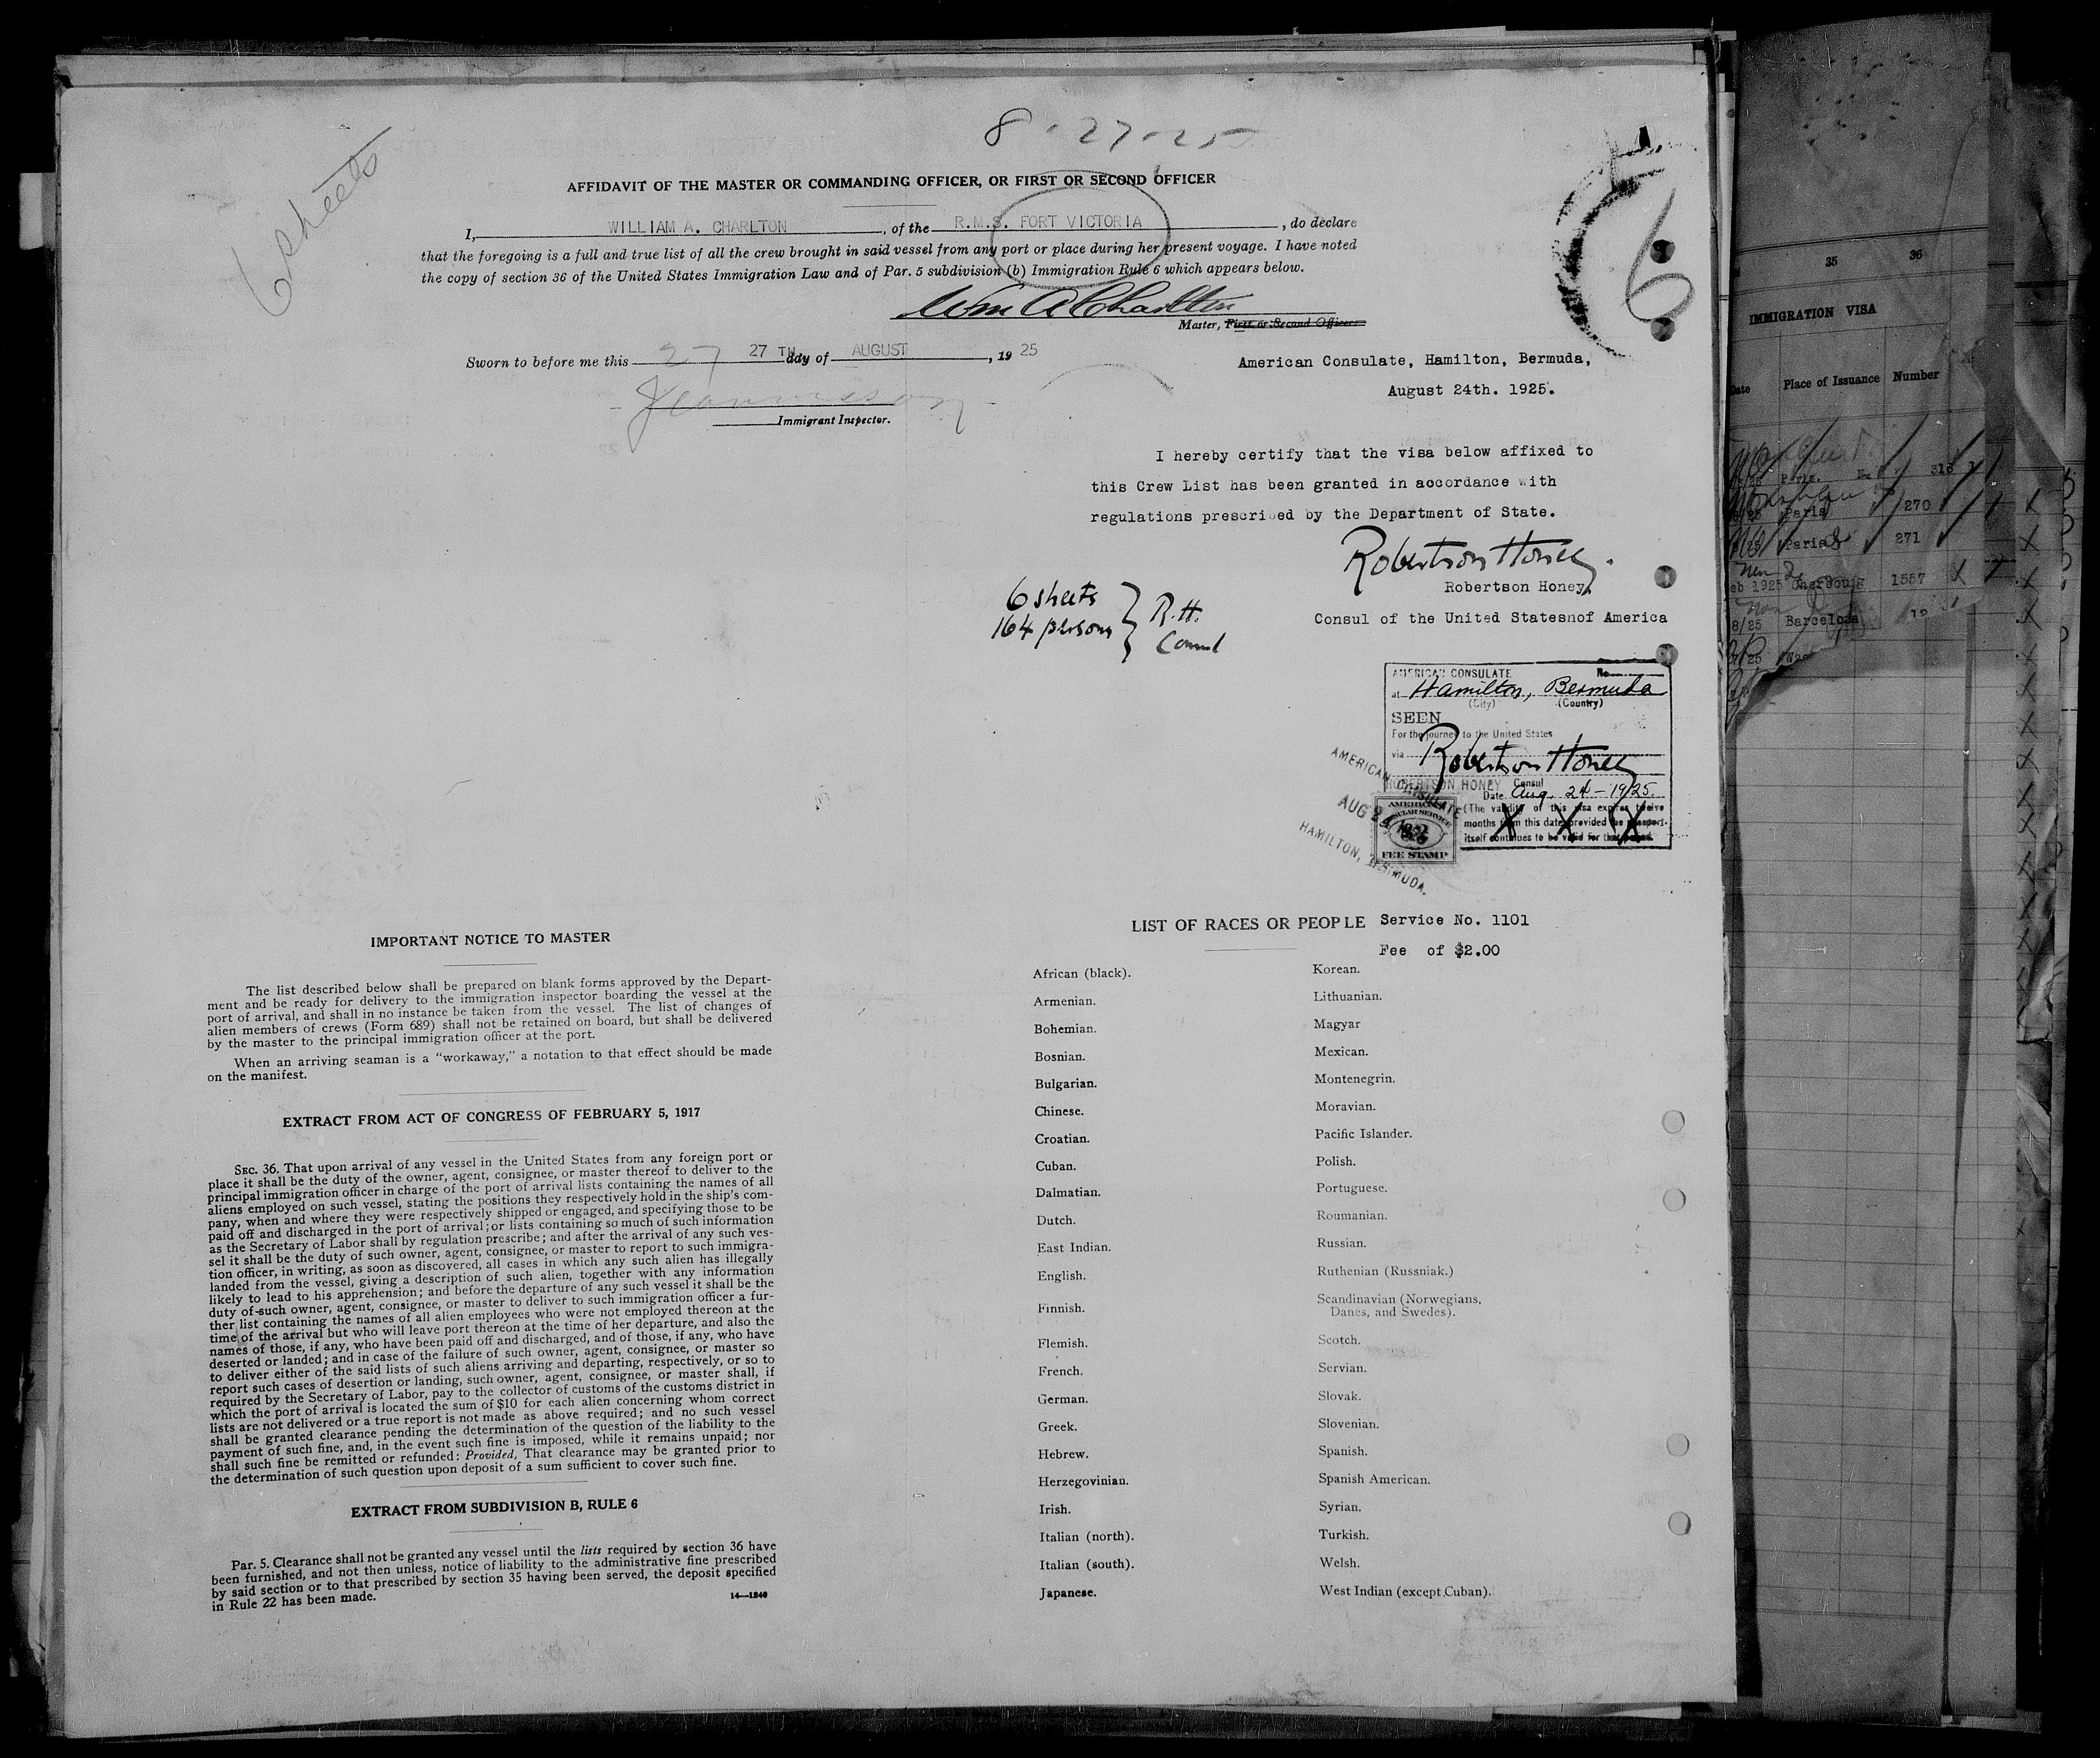 8-27-25
6 sheets
AFFIDAVIT OF THE MASTER OR COMMANDING OFFICER, OR FIRST OR SECOND OFFICER
I, WILLIAM A. CHARLTON, of the R.M.S. FORT VICTORIA, do declare
that the foregoing is a full and true list of all the crew brought in said vessel from any port or place during her present voyage. I have noted
the copy of section 36 of the United States Immigration Law and of Par. 5 subdivision (b) Immigration Rule 6 which appears below.
Wm A Charlton
Master, First or Second Officer.
Sworn to before me this 27 27 TH day of AUGUST, 19 25
Immigrant Inspector.
6
American Consulate, Hamilton, Bermuda,
August 24th. 1925.
I hereby certify that the visa below affixed to
this Crew List has been granted in accordance with
regulations prescribed by the Department of State.
Robertson Honey.
Robertson Honey,
Consul of the United Statesnof America
6 sheets
164 persons
R.H.
Consul
AMERICAN CONSULATE No.
at Hamilton, Bermuda
(City) (Country)
SEEN
For the journey to the United States
via Robertson Honey
ROBERTSON HONEY Consul
Date Aug. 24-1925.
(The validity of this visa expires twelve
months from this date provided the passport
itself continues to be valid for that period.
X X X
AMERICAN CONSULATE
AUG 24 1925
HAMILTON, BERMUDA.
AMERICAN
CONSULAR SERVICE
FEE STAMP
IMPORTANT NOTICE TO MASTER
The list described below shall be prepared on blank forms approved by the Depart-
ment and be ready for delivery to the immigration inspector boarding the vessel at the
port of arrival, and shall in no instance be taken from the vessel. The list of changes of
alien members of crews (Form 689) shall not be retained on board, but shall be delivered
by the master to the principal immigration officer at the port.
When an arriving seaman is a "workaway," a notation to that effect should be made
on the manifest.
EXTRACT FROM ACT OF CONGRESS OF FEBRUARY 5, 1917
SEC. 36. That upon arrival of any vessel in the United States from any foreign port or
place it shall be the duty of the owner, agent, consignee, or master thereof to deliver to the
principal immigration officer in charge of the port of arrival lists containing the names of all
aliens employed on such vessel, stating the positions they respectively hold in the ship's com-
pany, when and where they were respectively shipped or engaged, and specifying those to be
paid off and discharged in the port of arrival; or lists containing so much of such information
as the Secretary of Labor shall by regulation prescribe; and after the arrival of any such ves-
sel it shall be the duty of such owner, agent, consignee, or master to report to such immigra-
tion officer, in writing, as soon as discovered, all cases in which any such alien has illegally
landed from the vessel, giving a description of such alien, together with any information
likely to lead to his apprehension; and before the departure of any such vessel it shall be the
duty of such owner, agent, consignee, or master to deliver to such immigration officer a fur-
ther list containing the names of all alien employees who were not employed thereon at the
time of the arrival but who will leave port thereon at the time of her departure, and also the
names of those, if any, who have been paid off and discharged, and of those, if any, who have
deserted or landed; and in case of the failure of such owner, agent, consignee, or master so
to deliver either of the said lists of such aliens arriving and departing, respectively, or so to
report such cases of desertion or landing, such owner, agent, consignee, or master shall, if
required by the Secretary of Labor, pay to the collector of customs of the customs district in
which the port of arrival is located the sum of $10 for each alien concerning whom correct
lists are not delivered or a true report is not made as above required; and no such vessel
shall be granted clearance pending the determination of the question of the liability to the
payment of such fine, and, in the event such fine is imposed, while it remains unpaid; nor
shall such fine be remitted or refunded: Provided, That clearance may be granted prior to
the determination of such question upon deposit of a sum sufficient to cover such fine.
EXTRACT FROM SUBDIVISION B, RULE 6
Par. 5. Clearance shall not be granted any vessel until the lists required by section 36 have
been furnished, and not then unless, notice of liability to the administrative fine prescribed
by said section or to that prescribed by section 35 having been served, the deposit specified
in Rule 22 has been made.
14—1240
LIST OF RACES OR PEOPLE Service No. 1101
Fee of $2.00
African (black).
Armenian.
Bohemian.
Bosnian.
Bulgarian.
Chinese.
Croatian.
Cuban.
Dalmatian.
Dutch.
East Indian.
English.
Finnish.
Flemish.
French.
German.
Greek.
Hebrew.
Herzegovinian.
Irish.
Italian (north).
Italian (south).
Japanese.
Korean.
Lithuanian.
Magyar
Mexican.
Montenegrin.
Moravian.
Pacific Islander.
Polish.
Portuguese.
Roumanian.
Russian.
Ruthenian (Russniak.)
Scandinavian (Norwegians,
Danes, and Swedes).
Scotch.
Servian.
Slovak.
Slovenian.
Spanish.
Spanish American.
Syrian.
Turkish.
Welsh.
West Indian (except Cuban).
35 36
IMMIGRATION VISA
Date Place of Issuance Number
Paris. No. 313
Paris 270
Paris 271
Feb 1925 Cherbourg 1557
8/25 Barcelona